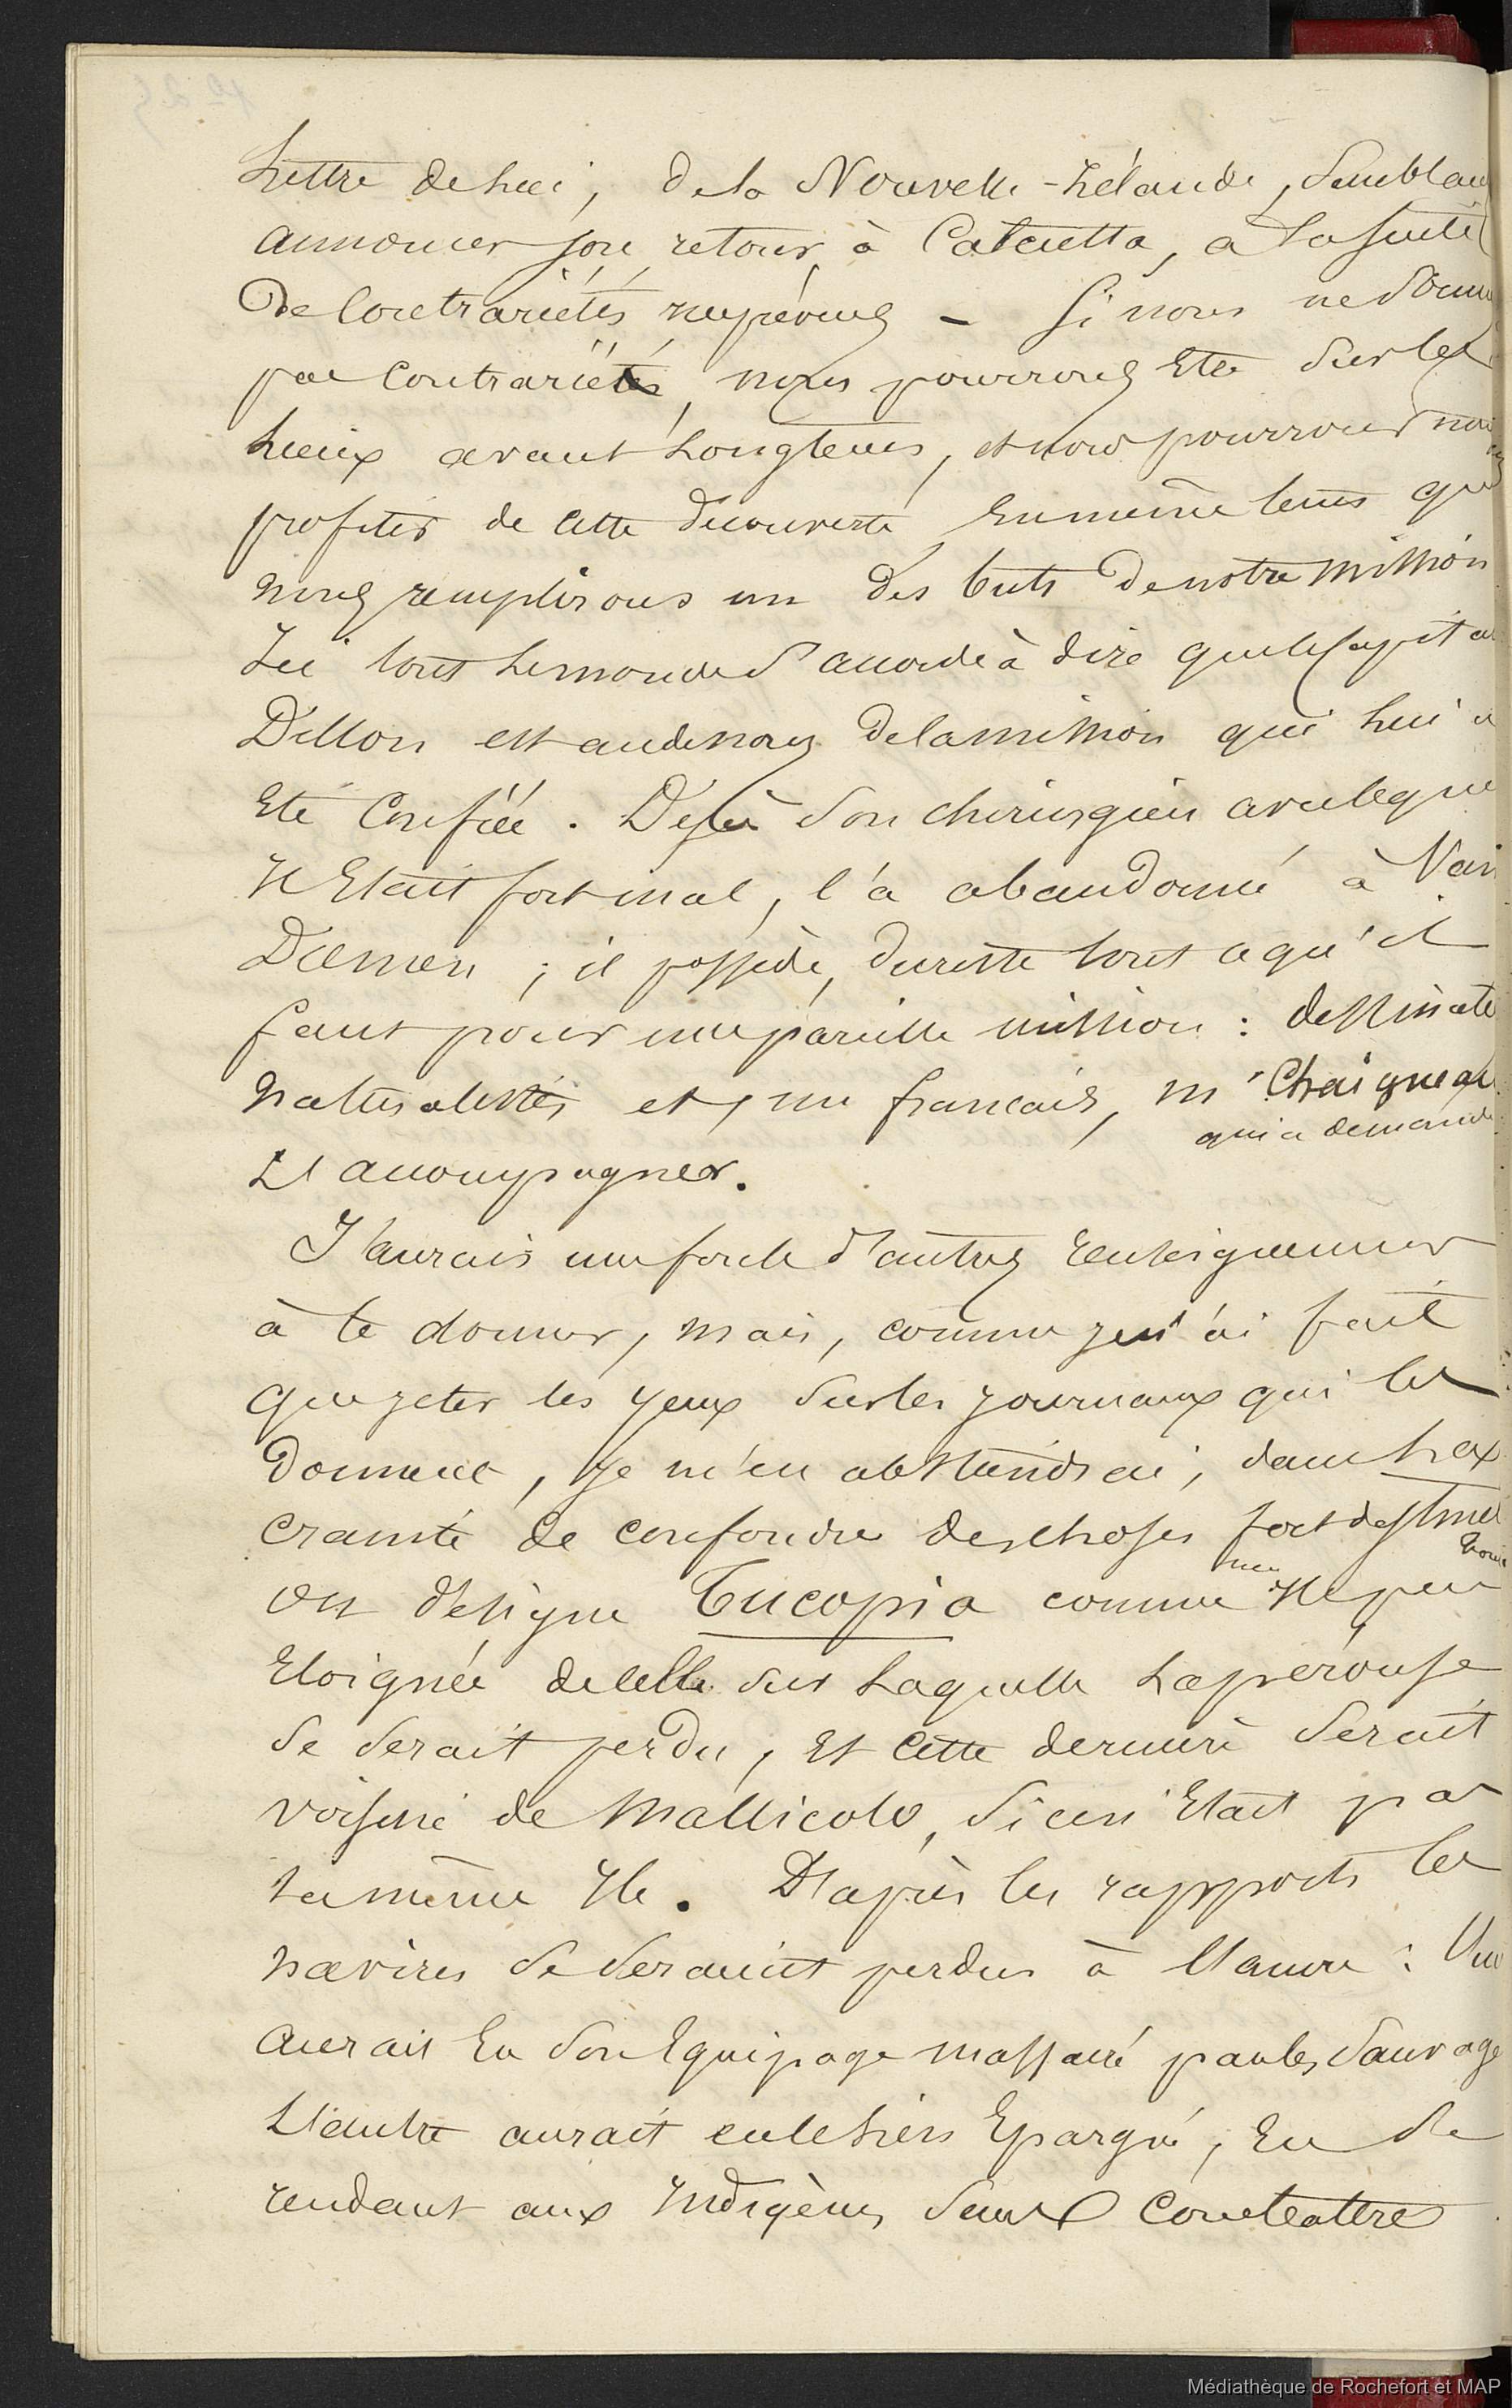 Lettre de lui, de la Nouvelle-Zélande, semblait
annoncer son retour à Calcutta, à la suite
de Contrariétés imprévues - Si nous ne sommes
pas contrariés, nous pourrons être sur les
Lieux avant Longtems, et nous pourrons nous
profiter de cette découverte, en même tems que
nous remplirons un des buts de notre Mission
Ici tout le monde s'accorde à dire que le Capitai
Dillon est au dessous de la mission qui lui a
été Confiée. Déjà son chirurgien avec lequel
Il Etait fort mal, l'a abandonné à Van
Diémen ; il possède, du reste tout ce qu'il
faut pour une pareille mission : dessinate
Naturalistes et, un français, mr Chaigneau
qui a demandé
à l'accompagner.
J'aurais une foule d'autres renseignemens
à te donner, mais, comme je n'ai fait
que jeter les yeux sur les journaux qui les
donnent, je m'en abstiendrai, dans la
crainte de confondre des choses fort
on désigne Tucopia comme une Ile peu
Eloignée de celle sur Laquelle Lapérouse
se serait perdu, et cette dernière serait
voisine de Mallicolo, si ce n'était pas
La même Ile. D'après les rapports les
navires se seraient perdus à l'ancre : Un
aurait Eu son Equipage massacré par les Sauvage
L'autre aurait eu le sien Epargné, En se
rendant aux Indigènes sans combattre
Médiathèque de Rochefort et MAP